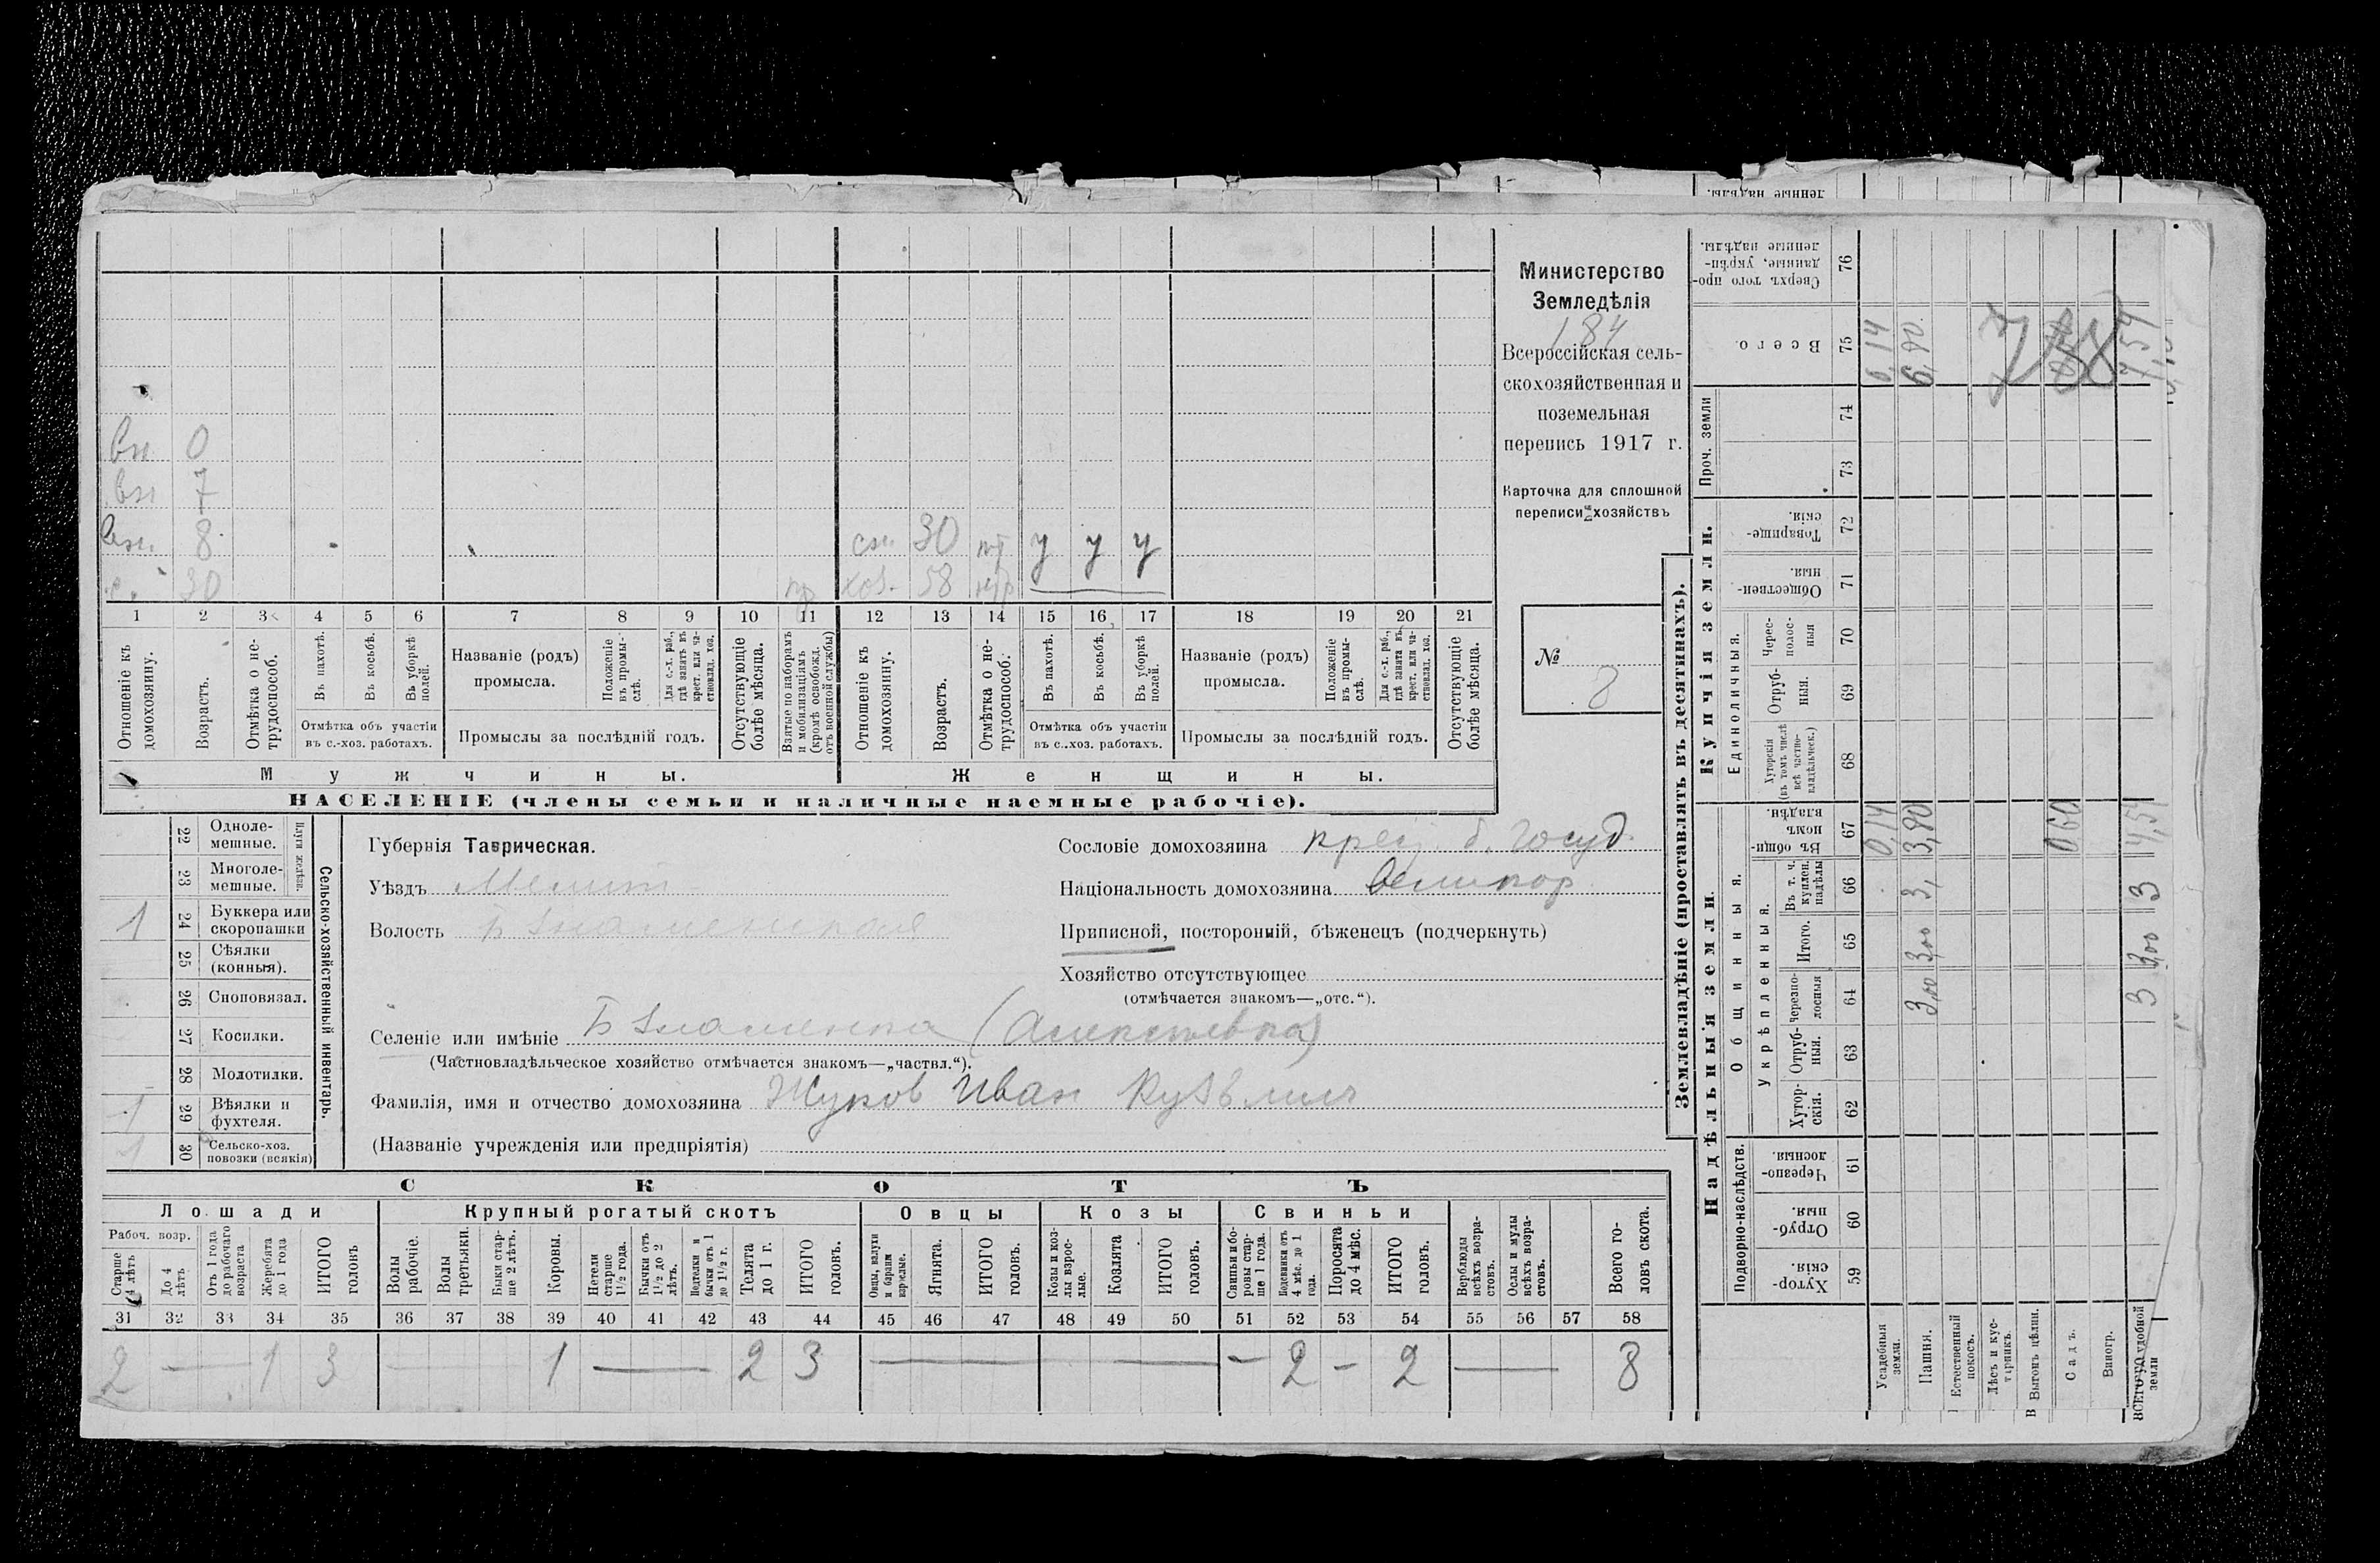 ленные надѣлы.
вн 0
вн 7
вн 8 сн. 30 нт у у у
с. 30 пр хоз. 58 нтр
1 2 3 4 5 6 7 8 9 10 11 12 13 14 15 16 17 18 19 20 21
Отношеніе къ домохозяину.
Возрастъ.
Отмѣтка о не-
трудоспособ.
Въ пахотѣ.
Въ косьбѣ.
Въ уборкѣ
полей.
Отмѣтка объ участіи
въ с.-хоз. работахъ.
Названіе (родъ)
промысла.
Положеніе
въ промы-
слѣ.
Для с.-х. раб.,
гдѣ занятъ въ
крест. или ча-
стновлад. хоз.
Промыслы за послѣдній годъ.
Отсутствующіе
болѣе мѣсяца.
Взятые по наборамъ
и мобилизаціямъ
(кромѣ освобожд.
отъ военной службы)
Отношеніе къ
домохозяину.
Возрастъ.
Отмѣтка о не-
трудоспособ.
Въ пахотѣ.
Въ косьбѣ.
Въ уборкѣ
полей.
Отмѣтка объ участіи
въ с.-хоз. работахъ.
Названіе (родъ)
промысла.
Положеніе
въ промы-
слѣ.
Для с.-х. раб.,
гдѣ занята въ
крест. или ча-
стновлад. хоз.
Промыслы за послѣдній годъ.
Отсутствующіе
болѣе мѣсяца.
Мужчины. Женщины.
НАСЕЛЕНІЕ (члены семьи и наличные наемные рабочіе).
Министерство
Земледѣлія
184
Всероссійская сель-
скохозяйственная и
поземельная
перепись 1917 г.
Карточка для сплошной
переписи хозяйствъ
№
8
Сельско-хозяйственный инвентарь.
Плуги желѣзн.
22 Одноле-
мешные.
23 Многоле-
мешные.
1 24 Буккера или
скоропашки
25 Сѣялки
(конныя).
26 Сноповязал.
27 Косилки.
28 Молотилки.
1 29 Вѣялки и
фухтеля.
1 30 Сельско-хоз.
повозки (всякія)
Губернія Таврическая.
Уѣздъ Мелит
Волость Б Знаменская
Сословіе домохозяина крест. б. Госуд.
Національность домохозяина Великор
Приписной, посторонній, бѣженецъ (подчеркнуть)
Хозяйство отсутствующее
(отмѣчается знакомъ—„отс.“).
Селеніе или имѣніе Б Знаменка (Алексеевка)
(Частновладѣльческое хозяйство отмѣчается знакомъ—„частвл.“).
Фамилія, имя и отчество домохозяина Жуков Иван Кузьмич
(Названіе учрежденія или предпріятія)
СКОТЪ
Лошади Крупный рогатый скотъ Овцы Козы Свиньи
Рабоч. возр.
Старше
4 лѣтъ
До 4
лѣтъ
Отъ 1 года
до рабочаго
возраста
Жеребята
до 1 года
ИТОГО
головъ
Волы
рабочіе.
Волы
третьяки.
Быки стар-
ше 2 лѣтъ.
Коровы.
Нетели
старше
1½ года.
Бычки отъ
1½ до 2
лѣтъ.
Подтелки и
бычки отъ 1
до 1½ г.
Телята
до 1 г.
ИТОГО
головъ.
Овцы, валухи
и бараны
взрослые.
Ягнята.
ИТОГО
головъ.
Козы и коз-
лы взрос-
лые.
Козлята
ИТОГО
головъ.
Свиньи и бо-
ровы стар-
ше 1 года.
Подсвинки отъ
4 мѣс. до 1
года.
Поросята
до 4 мѣс.
ИТОГО
головъ.
Верблюды
всѣхъ возра-
стовъ.
Ослы и мулы
всѣхъ возра-
стовъ.
Всего го-
ловъ скота.
31 32 33 34 35 36 37 38 39 40 41 42 43 44 45 46 47 48 49 50 51 52 53 54 55 56 57 58
2 — 1 3 — 1 — 2 3 — — — 2 — 2 — 8
Землевладѣніе (проставлять въ десятинахъ).
Надѣльныя земли. Купчія земли.
Подворно-наслѣдств.
Общинныя.
Укрѣпленныя.
Единоличныя.
Проч. земли
Хутор-
скія. 59
Отруб-
ныя. 60
Черезпо-
лосныя. 61
Хутор-
скія. 62
Отруб-
ныя. 63
Черезпо-
лосныя 64
Итого. 65
Въ т. ч.
куплен.
надѣлы 66
Въ общин-
номъ
владѣн. 67
Хуторскія
(въ томъ числѣ
всѣ частно-
владѣльческ.) 68
Отруб-
ныя. 69
Черес-
полос-
ныя 70
Обществен-
ныя. 71
Товарище-
скія. 72
73
74
Всего. 75
Сверхъ того про-
данные, укрѣп-
ленные надѣлы. 76
Усадебныя
земли. 0,14 0,14
Пашня. 3,00 3,00 3, 3,80 6,80
Естественный
покосъ.
Лѣсъ и кус-
тарникъ.
Выгонъ цѣлин.
Садъ. 0,60
Виногр.
ВСЕГО удобной
земли 3 3,00 3 4,54 7,54